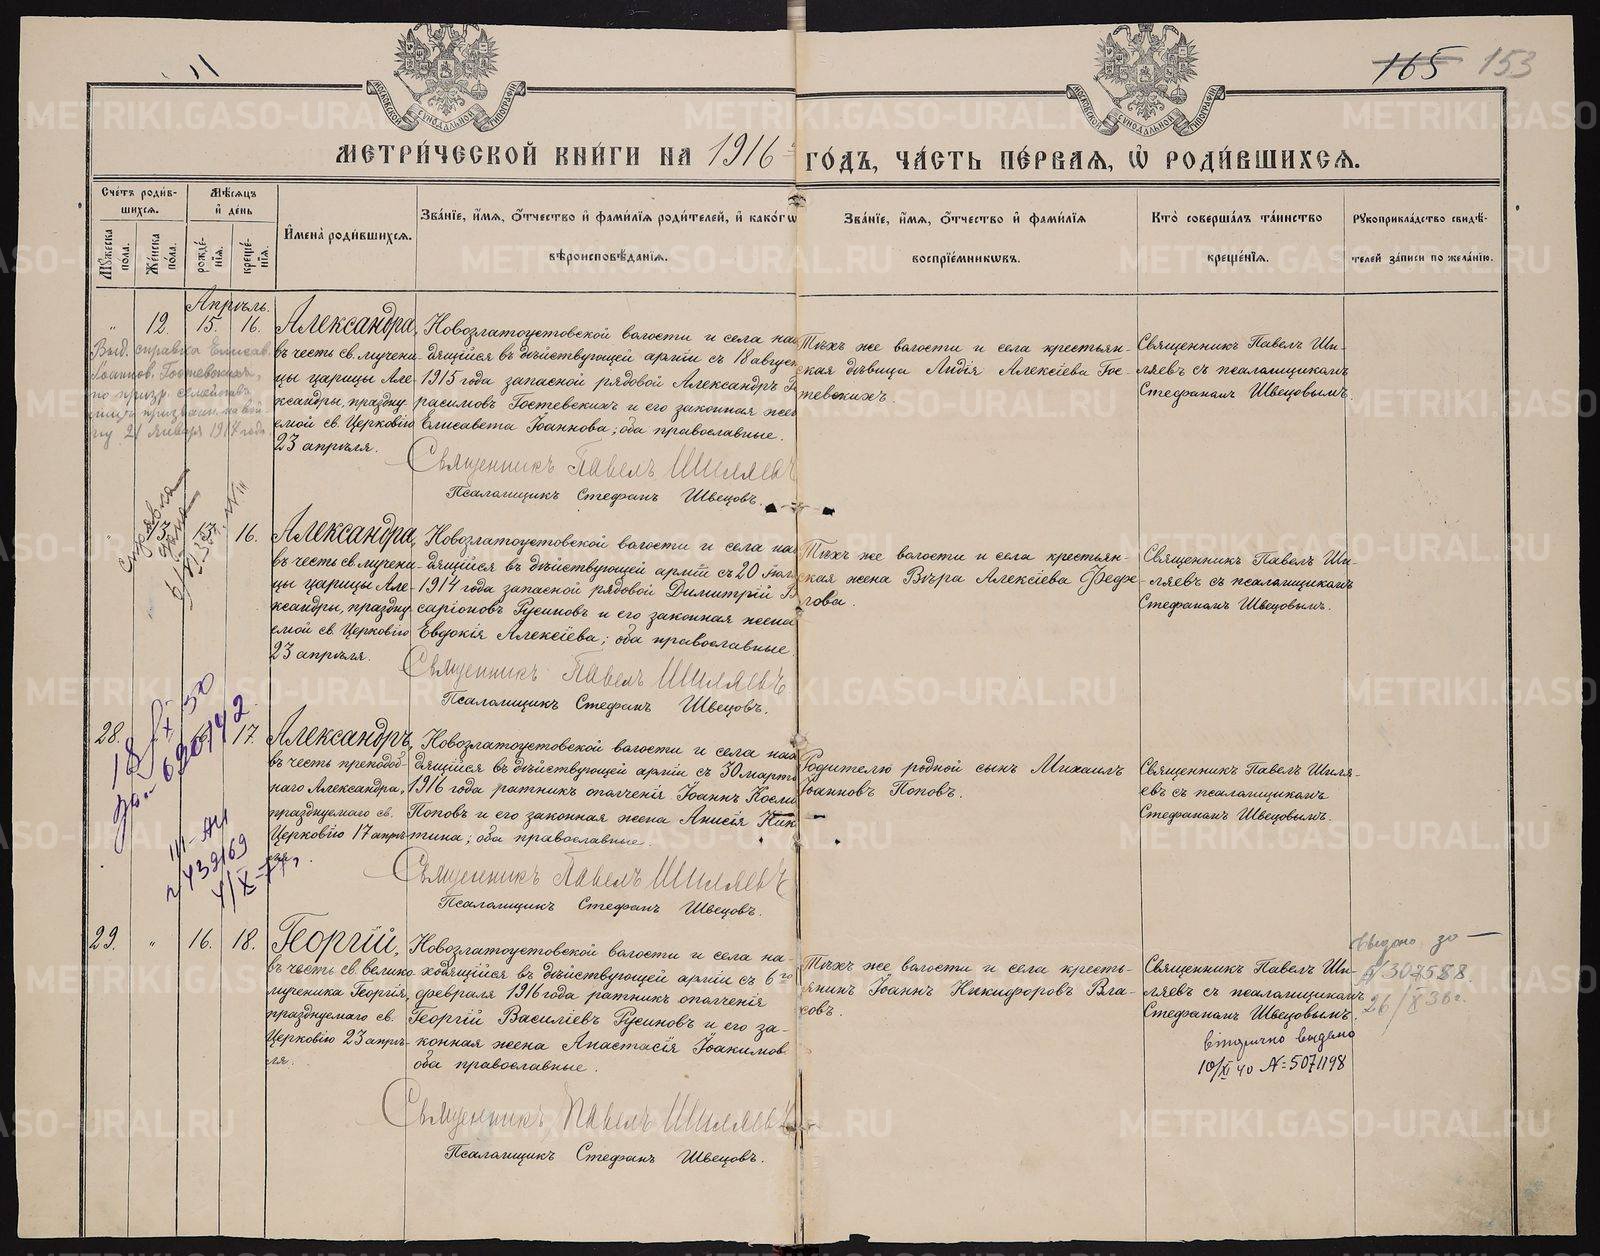 11
165 153
МОСКОВСКОЙ СѴНОДАЛЬНОЙ ТИПОГРАФІИ
МОСКОВСКОЙ СѴНОДАЛЬНОЙ ТИПОГРАФІИ
МЕТРИ́ЧЕСКОЙ КНИ́ГИ НА 1916 ГО́ДЪ, ЧА́СТЬ ПЕ́РВАЯ, Ѽ РОДИ́ВШИХСЯ.
Сче́тъ роди́в-
шихся.
Мѣ́сяцъ
и҆ де́нь
Му́жеска
по́ла.
Же́нска
по́ла.
рожде́-
нїя.
креще́-
нїя.
И҆мена̀ роди́вшихся.
Зва́нїе, и҆́мя, ѻ҆́тчество и҆ фами́лїя роди́телей, и҆ како́гѡ
вѣроисповѣ́данїя.
Зва́нїе, и҆́мя, ѻ҆́тчество и҆ фами́лїя
воспрїе́мникѡвъ.
Кто̀ соверша́лъ та́инство
креще́нїя.
Рꙋкоприкла́дство свидѣ́-
телей за́писи по жела́нїю.
Апрѣль.
" 12. 15. 16.
Александра,
въ честь св. мучени-
цы царицы Але-
ксандры, праздну
емой св. Церковію
23 апрѣля.
Новозлатоустовской волости и села на
дящійся въ дѣйствующей арміи съ 18 август
1915 года запасной рядовой Александръ Г
расимовъ Гостевскихъ и его законная жен
Елисавета Іоаннова; оба православные.
Священникъ Павелъ Шиляевъ
Псаломщикъ Стефанъ Швецовъ.
Тѣхъ же волости и села крестьян-
ская дѣвица Лидія Алексіева Гос-
тевскихъ.
Священникъ Павелъ Ши-
ляевъ съ псаломщикомъ
Стефаномъ Швецовымъ.
Выд. справка Елисав.
Іоаннов. Гостевскихъ,
по призр. семейств
лицъ призванн. на вой
ну 21 января 1917 года
Справка
" 13. 13. 16.
Александра,
въ честь св. мучени-
цы царицы Але-
ксандры, праздну
емой св. Церковію
23 апрѣля.
Новозлатоустовской волости и села на
дящійся въ дѣйствующей арміи съ 20 іюл
1914 года запасной рядовой Димитрій В
саріоновъ Русиновъ и его законная жена
Евдокія Алексіева; оба православные.
Священникъ Павелъ Шиляевъ
Псаломщикъ Стефанъ Швецовъ.
Тѣхъ же волости и села крестьян-
ская жена Вѣра Алексіева Федо
рова.
Священникъ Павелъ Ши-
ляевъ съ псаломщикомъ
Стефаномъ Швецовымъ.
28. 17.
Александръ,
въ честь преподоб-
наго Александра,
празднуемаго св.
Церковію 17 апрѣ-
ля.
Новозлатоустовской волости и села нахо
дящійся въ дѣйствующей арміи съ 30 марта
1916 года ратникъ ополченія Іоаннъ Косми
Поповъ и его законная жена Анисія Ник
тина; оба православные.
Священникъ Павелъ Шиляевъ
Псаломщикъ Стефанъ Швецовъ.
Родителю родной сынъ Михаилъ
Іоанновъ Поповъ.
Священникъ Павелъ Шиля-
евъ съ псаломщикомъ
Стефаномъ Швецовымъ.
III-АИ
439169
29. " 16. 18.
Георгій,
въ честь св. велико
мученика Георгія,
празднуемаго св.
Церковію 23 апрѣ-
ля.
Новозлатоустовской волости и села на-
ходящійся въ дѣйствующей арміи съ 6го
февраля 1916 года ратникъ ополченія
Георгій Василіевъ Русиновъ и его за-
конная жена Анастасія Іоакимов
оба православные.
Священникъ Павелъ Шиляевъ
Псаломщикъ Стефанъ Швецовъ.
Тѣхъ же волости и села кресть-
янинъ Іоаннъ Никифоровъ Вла-
совъ.
Священникъ Павелъ Ши-
ляевъ съ псаломщикомъ
Стефаномъ Швецовымъ.
Выдано
№ 307588
26/X 36г.
вторично выдано
10/XI 40 №=5071198
METRIKI.GASO-URAL.RU